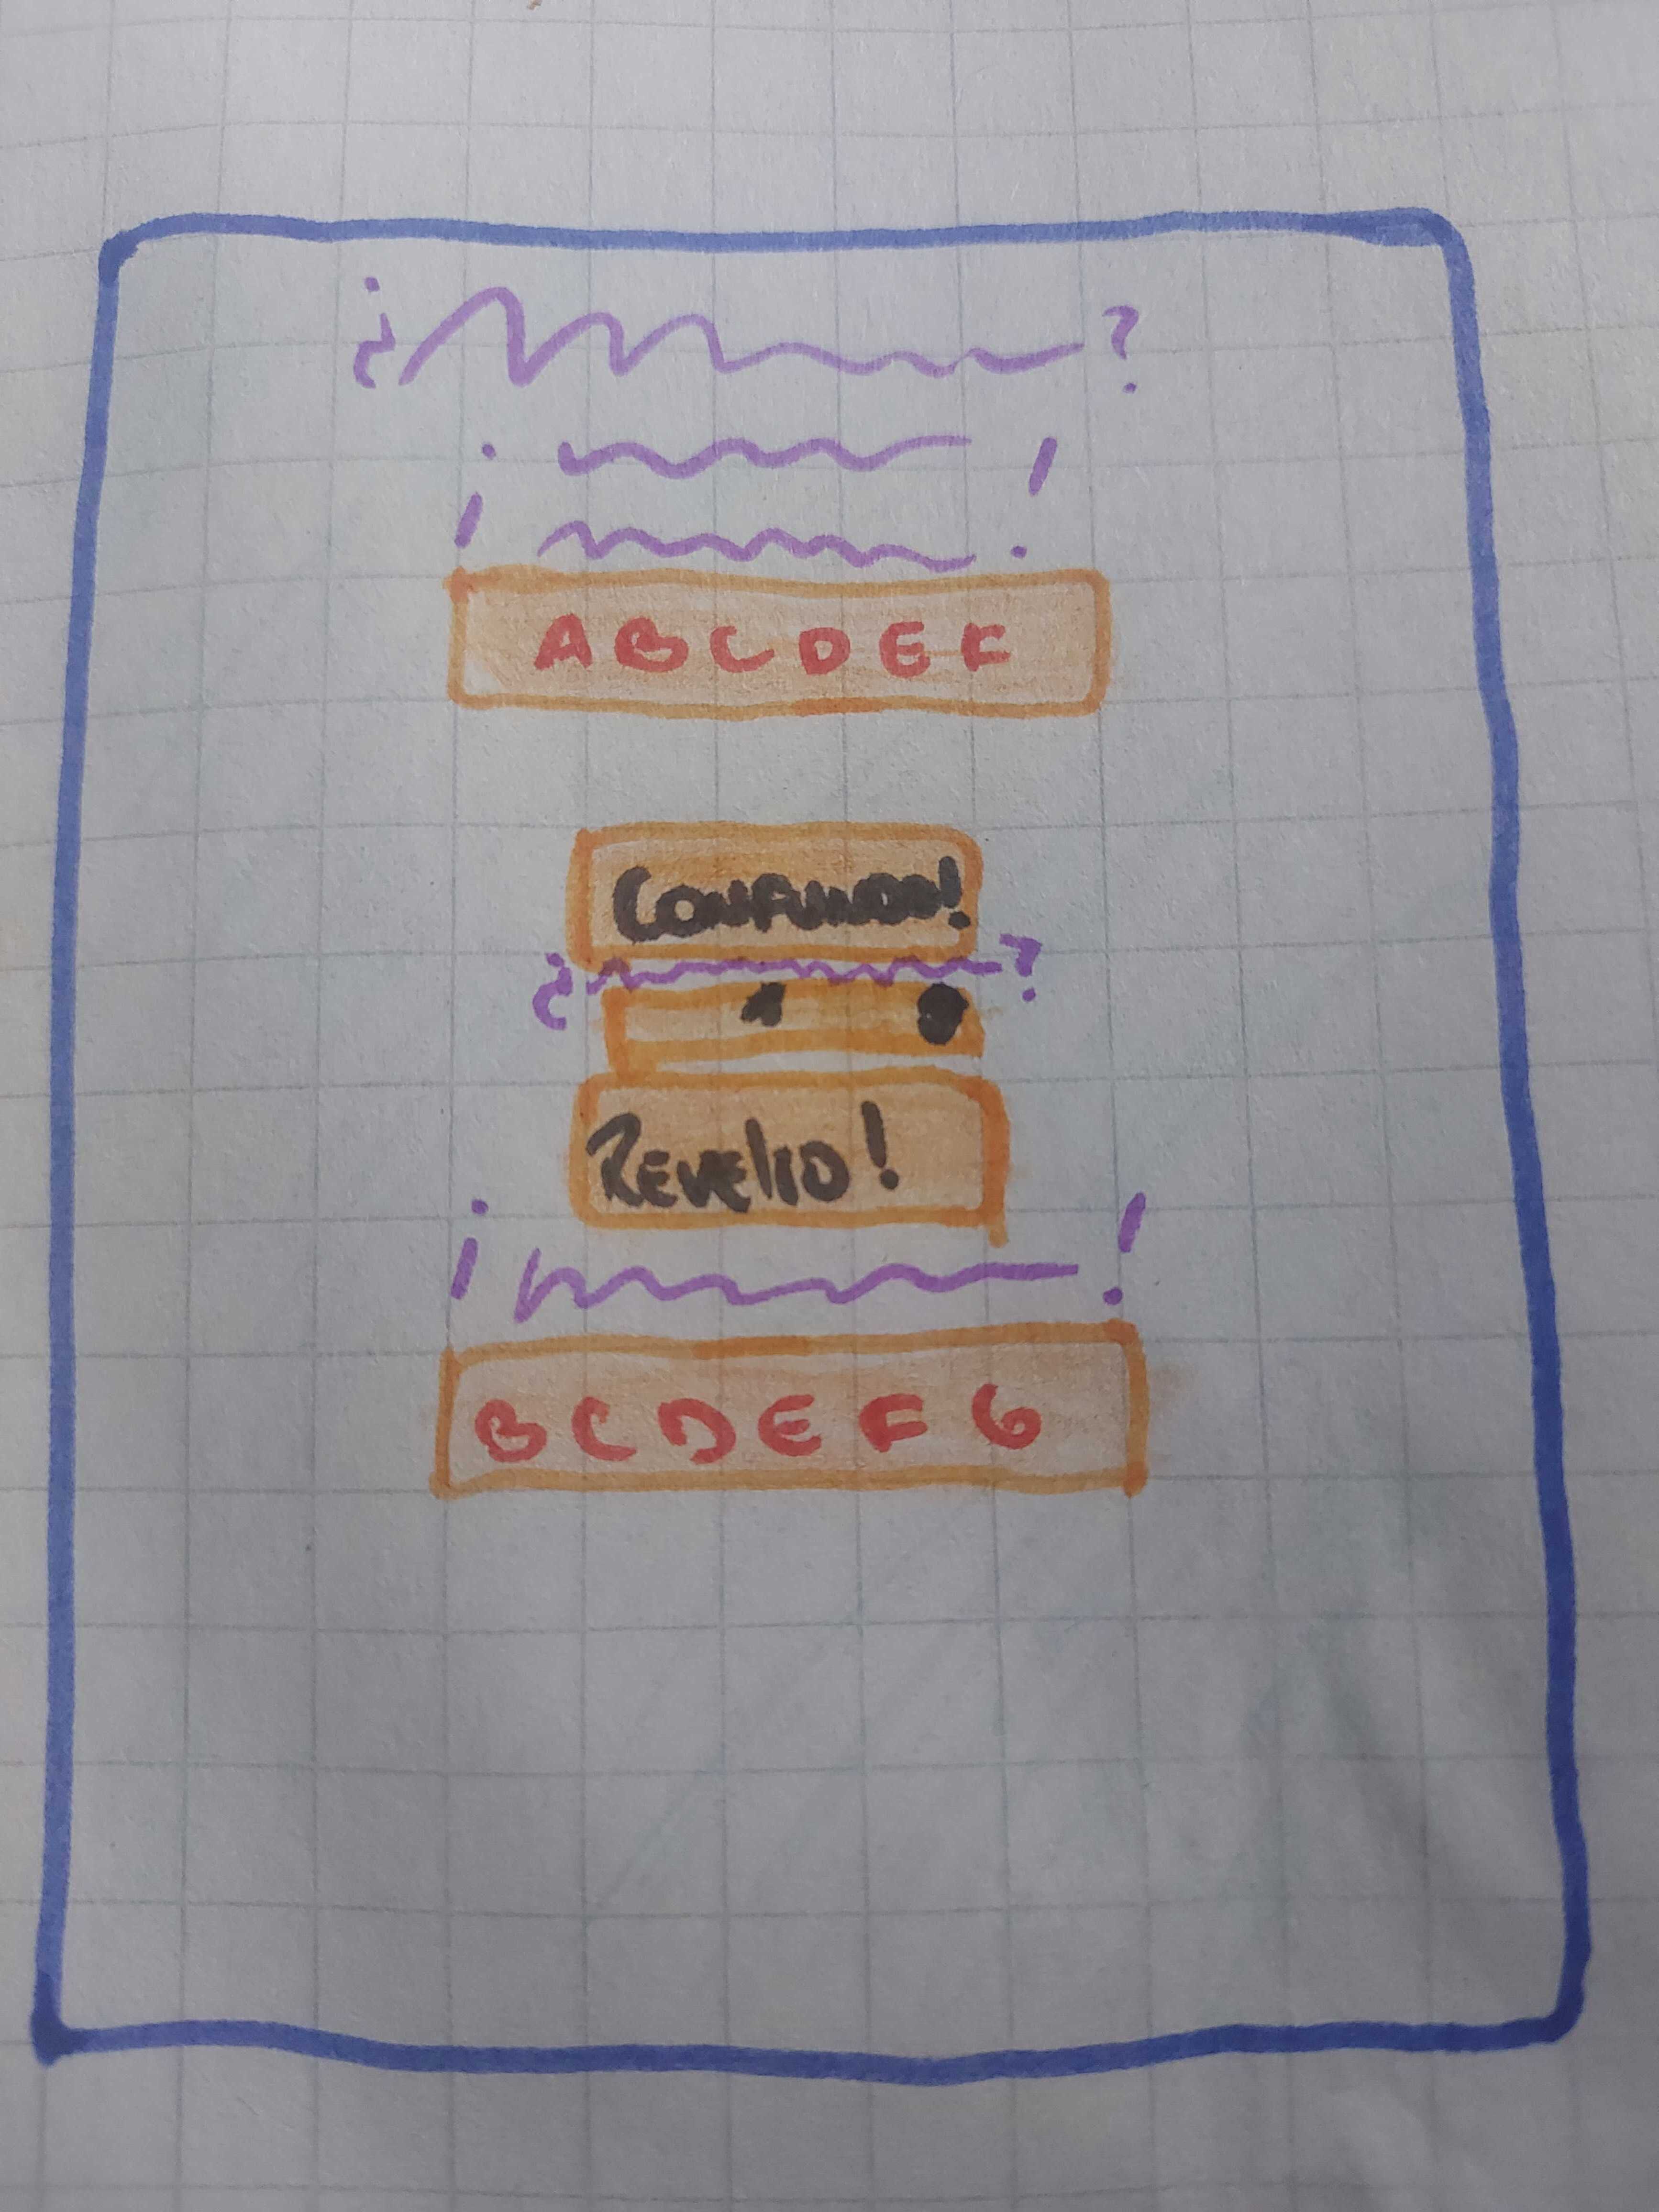 ¿ ?
¡ !
ABCDEF
CONFUNDO!
¿ ?
1
REVELIO!
¡ !
BCDEFG